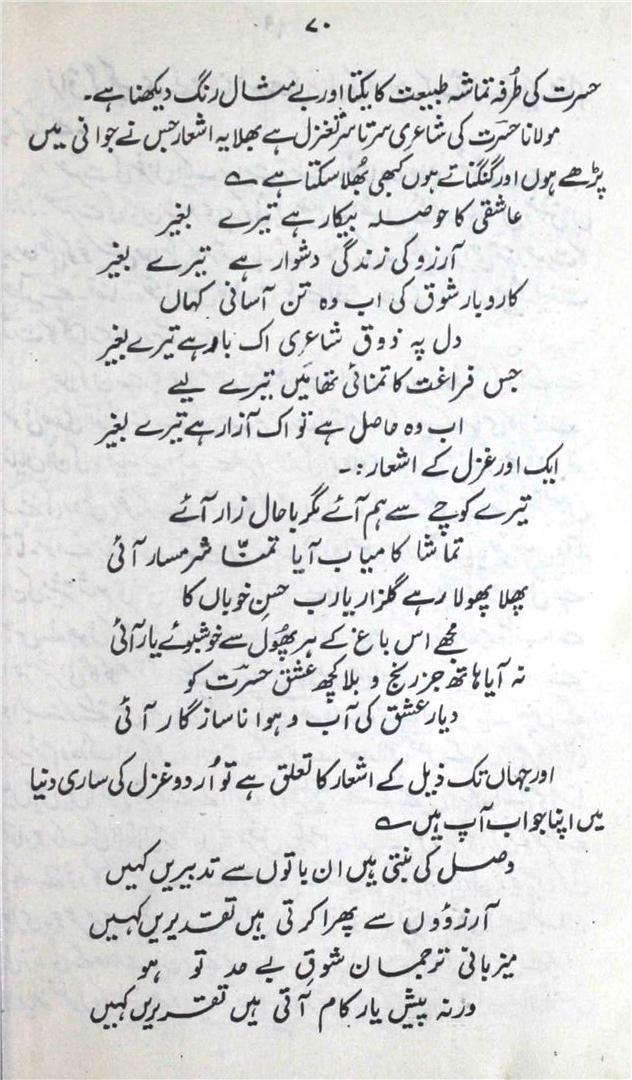 ۷۰
حسرت کی طُرفہ تماشہ طبیعت کا یکتا اور بے مثال رنگ دیکھنا ہے۔
مولانا حسرتؔ کی شاعری سرتاسر تغزل ہے بھلا یہ اشعار جس نے جوانی میں
پڑھے ہوں اور گنگنائے ہوں کبھی بُھلا سکتا ہے ؎
عاشقی کا حوصلہ بیکار ہے تیرے بغیر
آرزو کی زندگی دشوار ہے تیرے بغیر
کاروبار شوق کی اب وہ تن آسانی کہاں
دل پہ ذوق شاعری اک بار ہے تیرے بغیر
جس فراغت کا تمنائی تھا مَیں تیرے لیے
اب وہ حاصل ہے تو اک آزار ہے تیرے بغیر
ایک اور غزل کے اشعار :۔
تیرے کوچے سے ہم آئے مگر باحال زار آئے
تماشا کامیاب آیا تمنّا شرمسار آئی
پھلا پھولا رہے گلزار یارب حسنِ خوباں کا
مجھے اس باغ کے ہر پھُول سے خوشبوئے یار آئی
نہ آیا ہاتھ جز رنج و بلا کچھ عشق حسرتؔ کو
دیارِ عشق کی آب و ہوا ناسازگار آئی
اور جہاں تک ذیل کے اشعار کا تعلق ہے تو اُردو غزل کی ساری دنیا
میں اپنا جواب آپ ہیں ؎
وصل کی بنتی ہیں ان باتوں سے تدبیریں کہیں
آرزوؤں سے پھرا کرتی ہیں تقدیریں کہیں
میزبانی ترجمان شوقِ بے حد تو ہو
ورنہ پیشِ یار کام آتی ہیں تقریریں کہیں